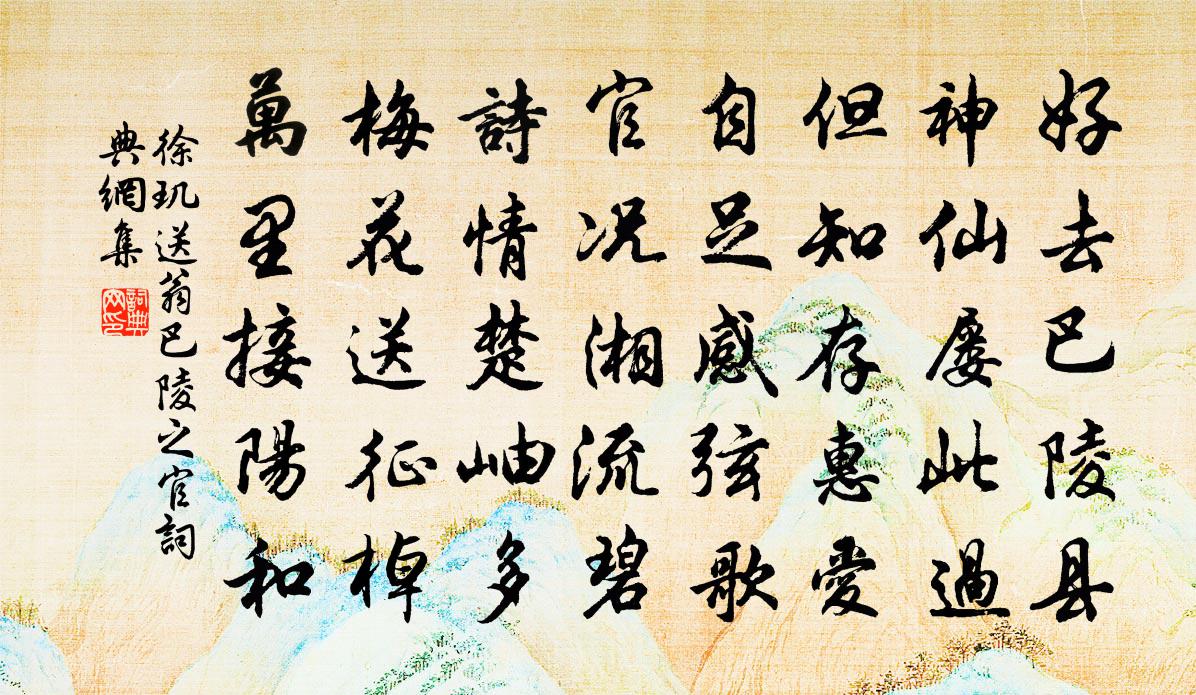 好去巴陵县
神仙屡此過
但知存惠愛
自足感弦歌
官况湘流碧
詩情楚岫多
梅花送征棹
萬里接陽和
徐玑送翁巴陵之官詞
典網集
詞典
网印